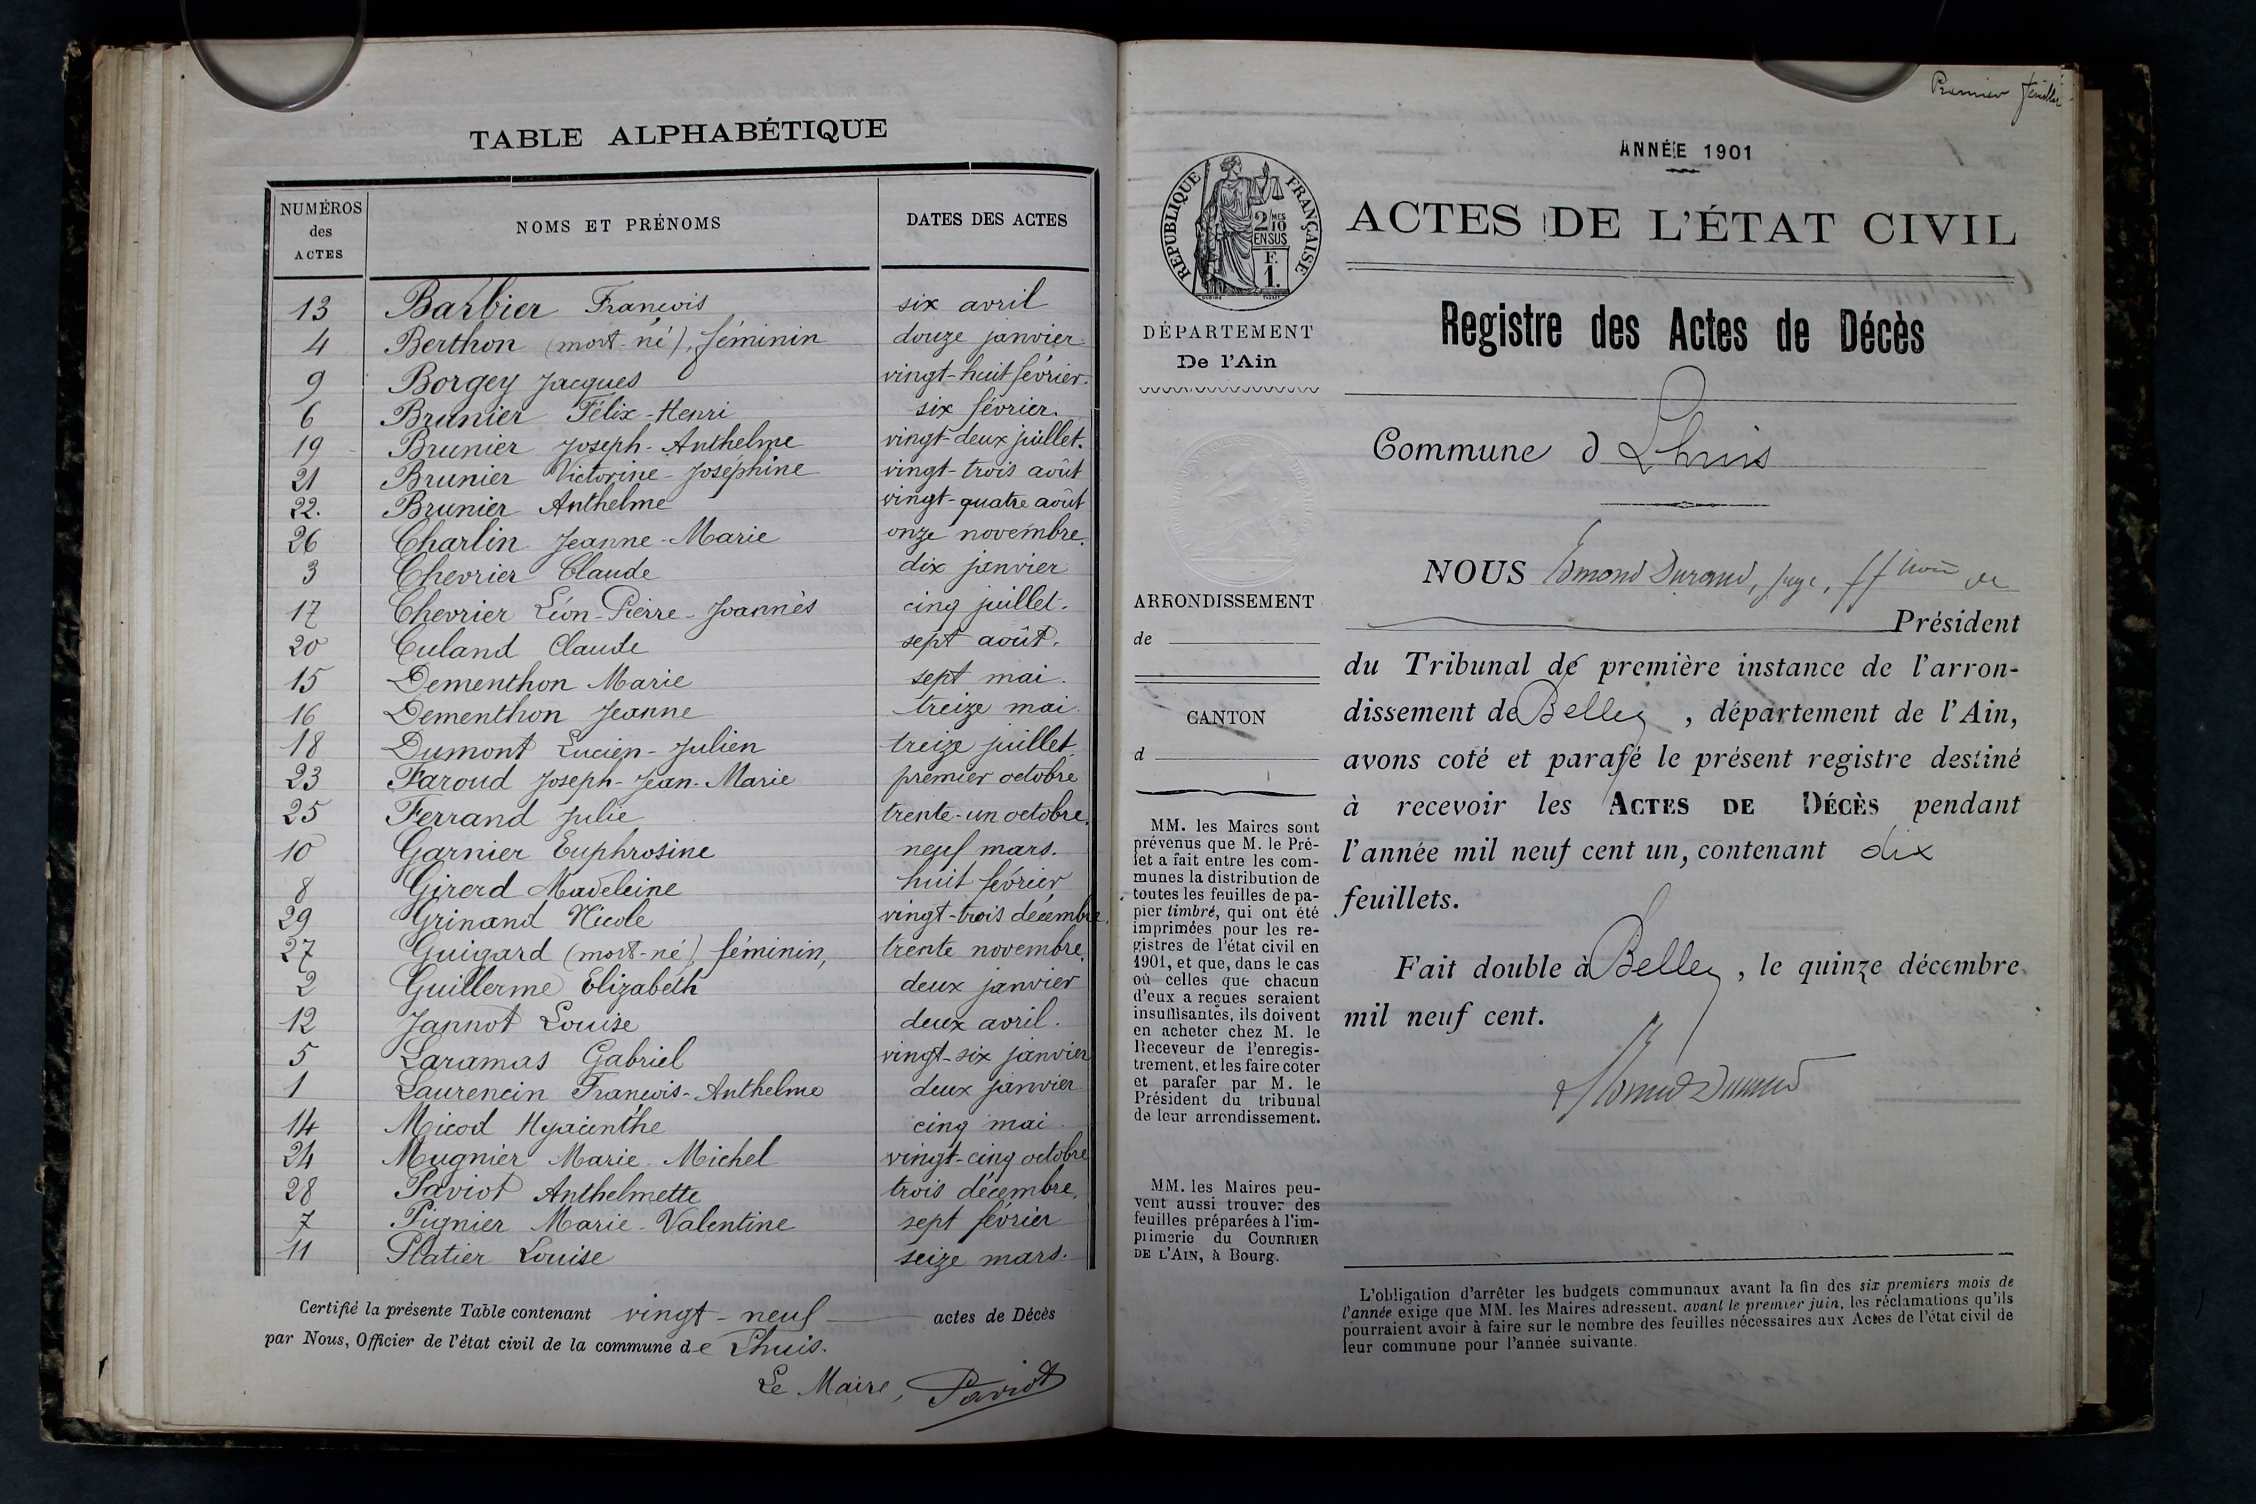 TABLE ALPHABÉTIQUE
NUMÉROS des ACTES NOMS ET PRÉNOMS DATES DES ACTES
13 Barbier François six avril
4 Berthon (mort-né), féminin douze janvier
9 Borgey Jacques vingt-huit février.
6 Brunier Félix-Henri six février.
19 Brunier Joseph-Anthelme vingt-deux juillet.
21 Brunier Victorine-Joséphine vingt-trois août
22. Brunier Anthelme vingt-quatre août
26 Charlin Jeanne-Marie onze novembre.
3 Chevrier Claude dix janvier
17 Chevrier Léon-Pierre-Joannès cinq juillet.
20 Culand Claude sept août.
15 Dementhon Marie sept mai.
16 Dementhon Jeanne treize mai.
18 Dumont Lucien-Julien treize juillet
23 Faroud Joseph-Jean-Marie premier octobre
25 Ferrand Julie trente-un octobre.
10 Garnier Euphrosine neuf mars.
8 Girerd Madeleine huit février
29 Grinand Nicole vingt-trois décembre.
27 Guigard (mort-né), féminin, trente novembre.
2 Guillerme Elizabeth deux janvier
12 Jannot Louise deux avril.
5 Laramas Gabriel vingt-six janvier
1 Laurencin François-Anthelme deux janvier
14 Micod Hyacinthe cinq mai
24 Mugnier Marie-Michel vingt-cinq octobre
28 Paviot Anthelmette trois décembre,
7 Pignier Marie-Valentine sept février
11 Platier Louise seize mars.
Certifié la présente Table contenant vingt-neuf actes de Décès
par Nous, Officier de l'état civil de la commune de Lhuis.
Le Maire, Paviot
Premier feuillet
ANNÉE 1901
RÉPUBLIQUE FRANÇAISE
2/10 MES
EN SUS
F.
1.
ACTES DE L'ÉTAT CIVIL
Registre des Actes de Décès
Commune d Lhuis
NOUS Edmond Durand, juge, ff
Président
du Tribunal de première instance de l'arron-
dissement de Belley, département de l'Ain,
avons coté et parafé le présent registre destiné
à recevoir les ACTES DE DÉCÈS pendant
l'année mil neuf cent un, contenant dix
feuillets.
Fait double à Belley, le quinze décembre
mil neuf cent.
Edmond Durand
L'obligation d'arrêter les budgets communaux avant la fin des six premiers mois de
l'année exige que MM. les Maires adressent, avant le premier juin, les réclamations qu'ils
pourraient avoir à faire sur le nombre des feuilles nécessaires aux Actes de l'état civil de
leur commune pour l'année suivante.
DÉPARTEMENT
De l'Ain
ARRONDISSEMENT
de
CANTON
d
MM. les Maires sont
prévenus que M. le Pré-
fet a fait entre les com-
munes la distribution de
toutes les feuilles de pa-
pier timbré, qui ont été
imprimées pour les re-
gistres de l'état civil en
1901, et que, dans le cas
où celles que chacun
d'eux a reçues seraient
insuffisantes, ils doivent
en acheter chez M. le
Receveur de l'enregis-
trement, et les faire coter
et parafer par M. le
Président du tribunal
de leur arrondissement.
MM. les Maires peu-
vent aussi trouver des
feuilles préparées à l'im-
primerie du COURRIER
DE L'AIN, à Bourg.